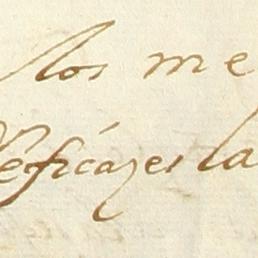 los me
eficazes la